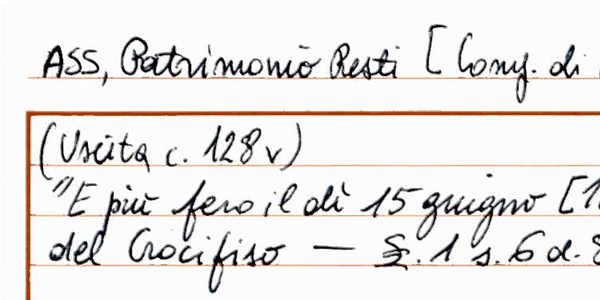 ASS, Patrimonio Resti [ Comp. di
(Uscita c. 128v)
"E più fero il dì 15 giugno [1
del Crocifiso — £. 1 s. 6 d. 8